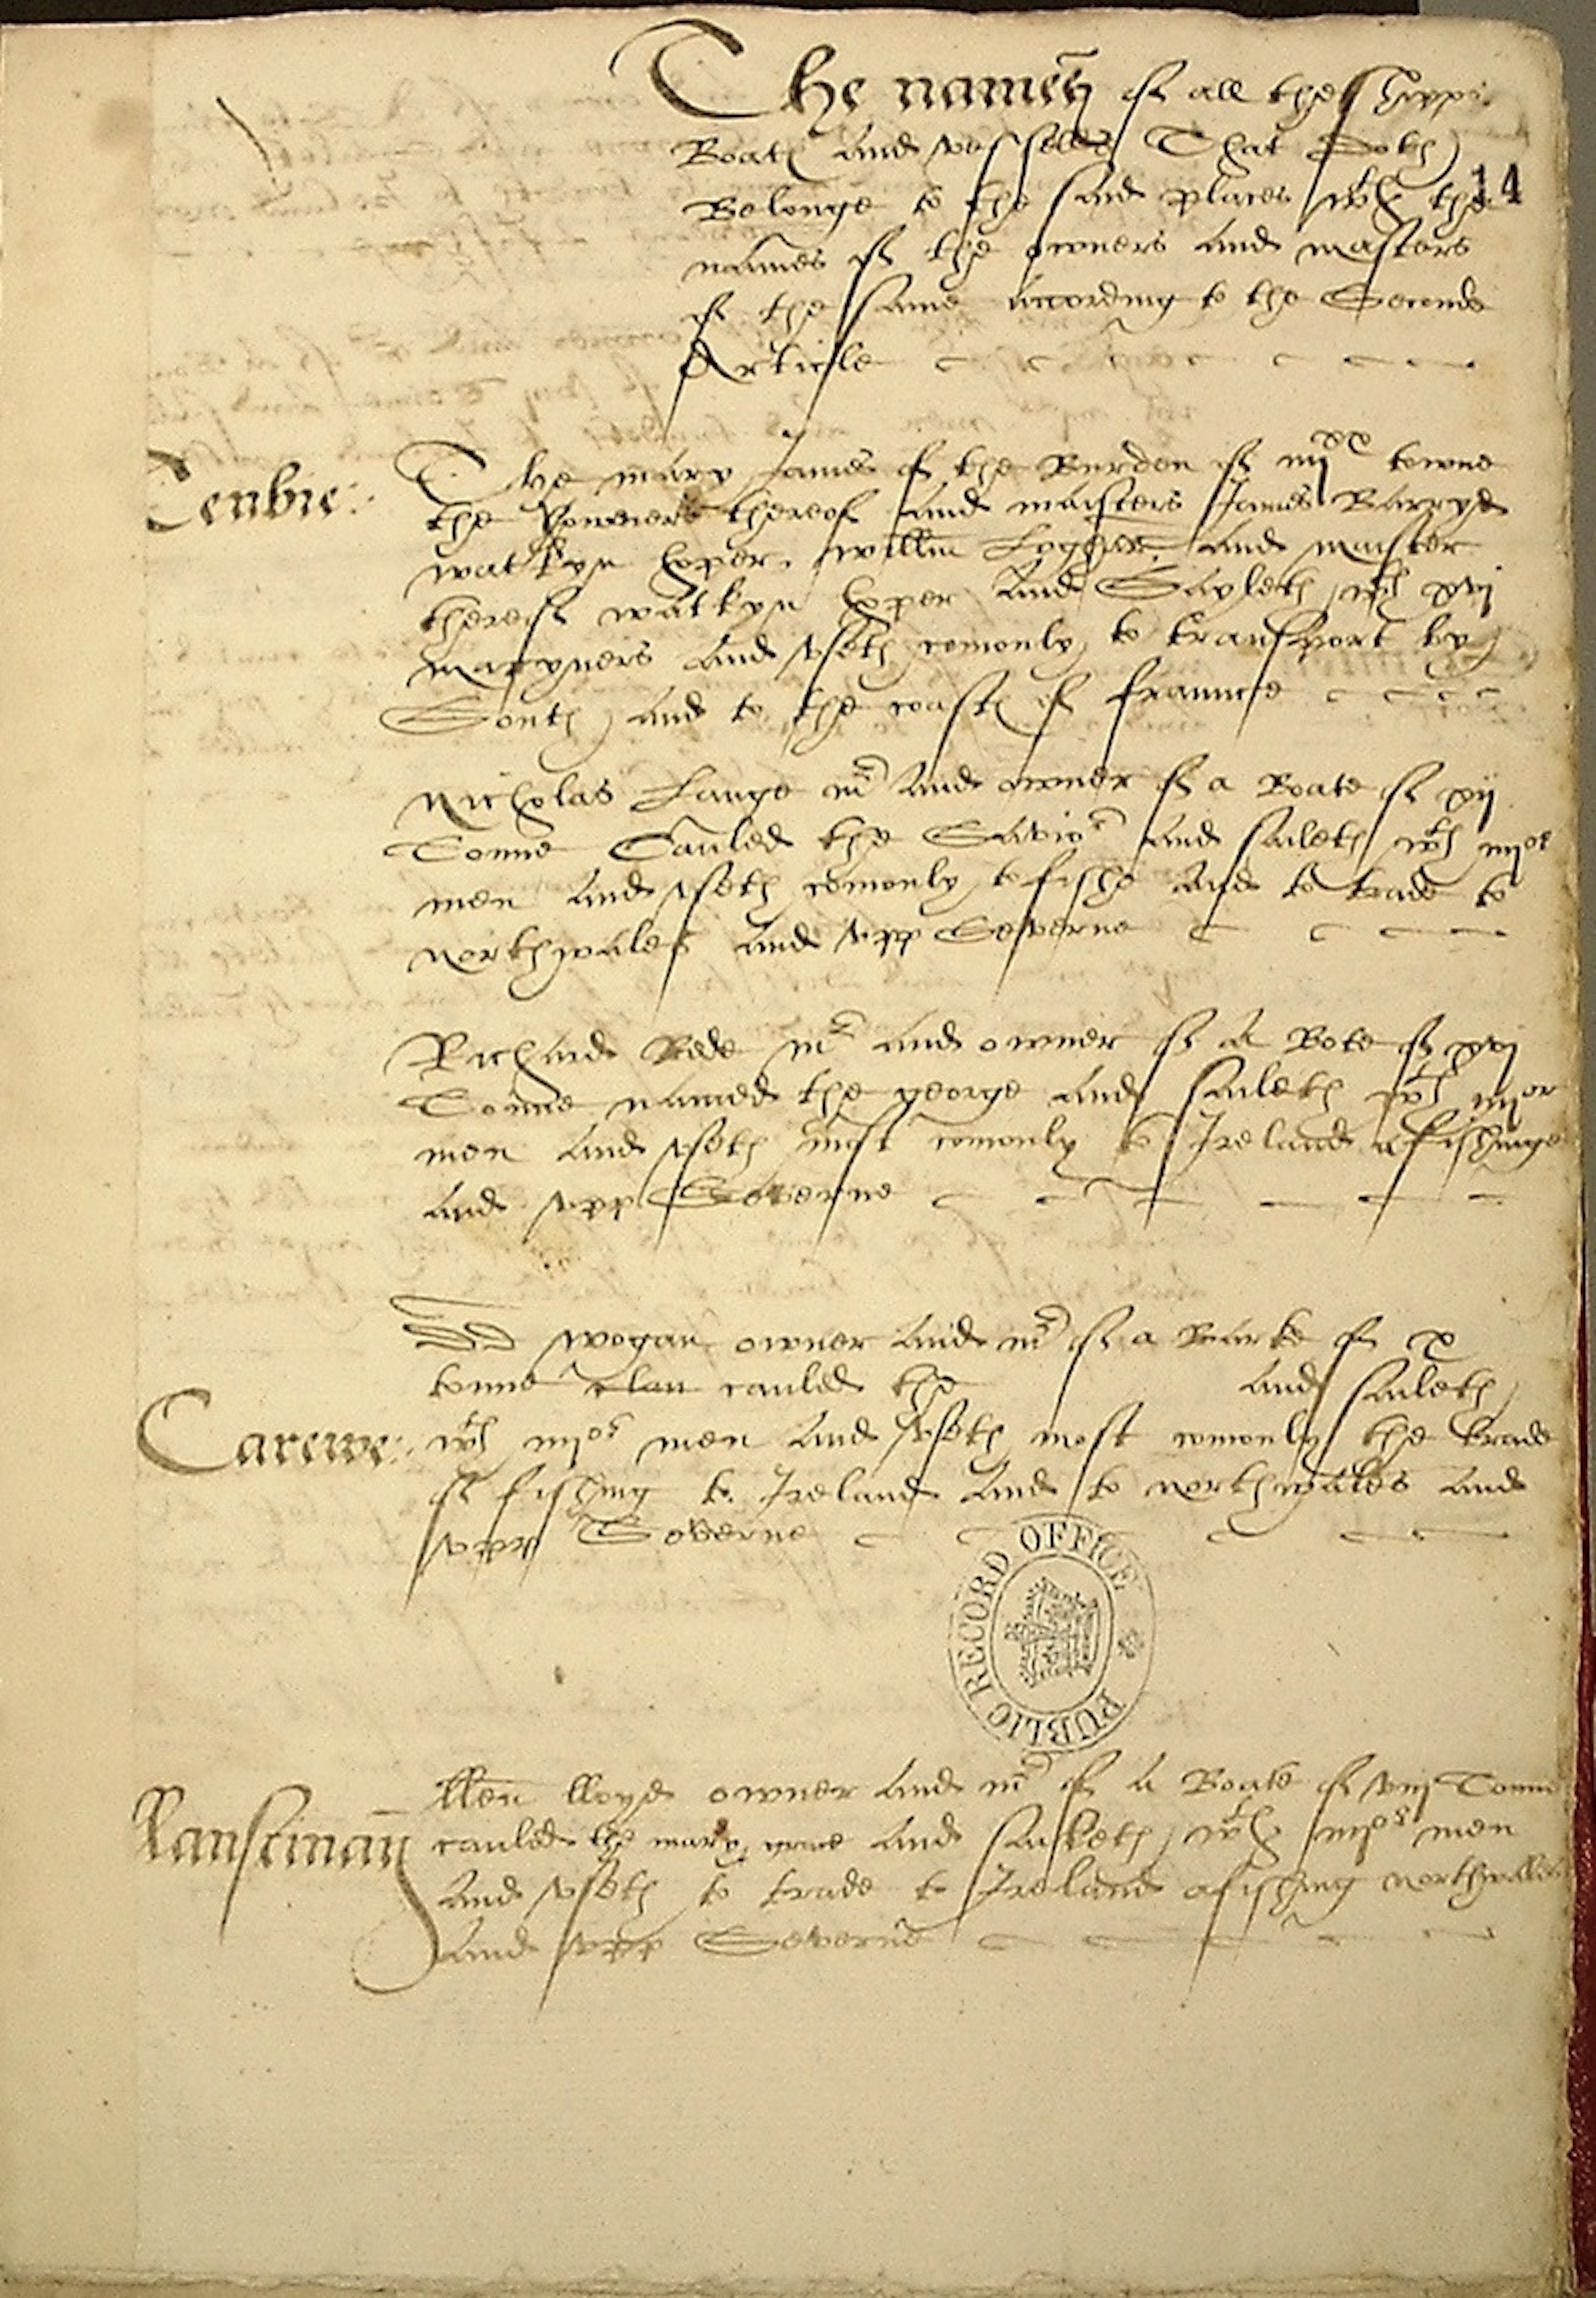 The names of all the Shipps
Boats and vesselles That Doth
14
Belonge to the said places wth the
names of the owners and masters
of the same according to the Seconde
Article
Tenbie:
The mary James of the Burden of iiijxx towne
the owners thereof and maisters James Barryd
watkyn hoper, willm and maister
thereof watkyn hoper and Sayleth wth xvj
maryners and vseth comonly to transport by
South and to the coaste of fraunce
Nicholas Lange mr and owner of a Boate of xij
Tonne Cauled the Savior and saileth wth iiijor
men and vseth comonly to fishe and to trade to
northwales and vpp Severne
Richard Rede mr and owner of a Bote of xvj
Tonne named the george and saileth wth iiijor
men and vseth most comonly to Ireland a fishinge
and vpp Severne
wogan owner and mr of a Barke of x
tonne cauled the and saileth
Carewe:
wth iiijor men and vseth most comonly the trade
of fishing to Ireland and to northwales and
vpp Severne
PUBLIC RECORD OFFICE
lleñ lloyd owner and mr of a Boate of viij Tonne
Llanstinan
cauled the mary grace and saileth wth iiijor men
and vseth to trade to Ireland a fishing northwales
and vpp Severne